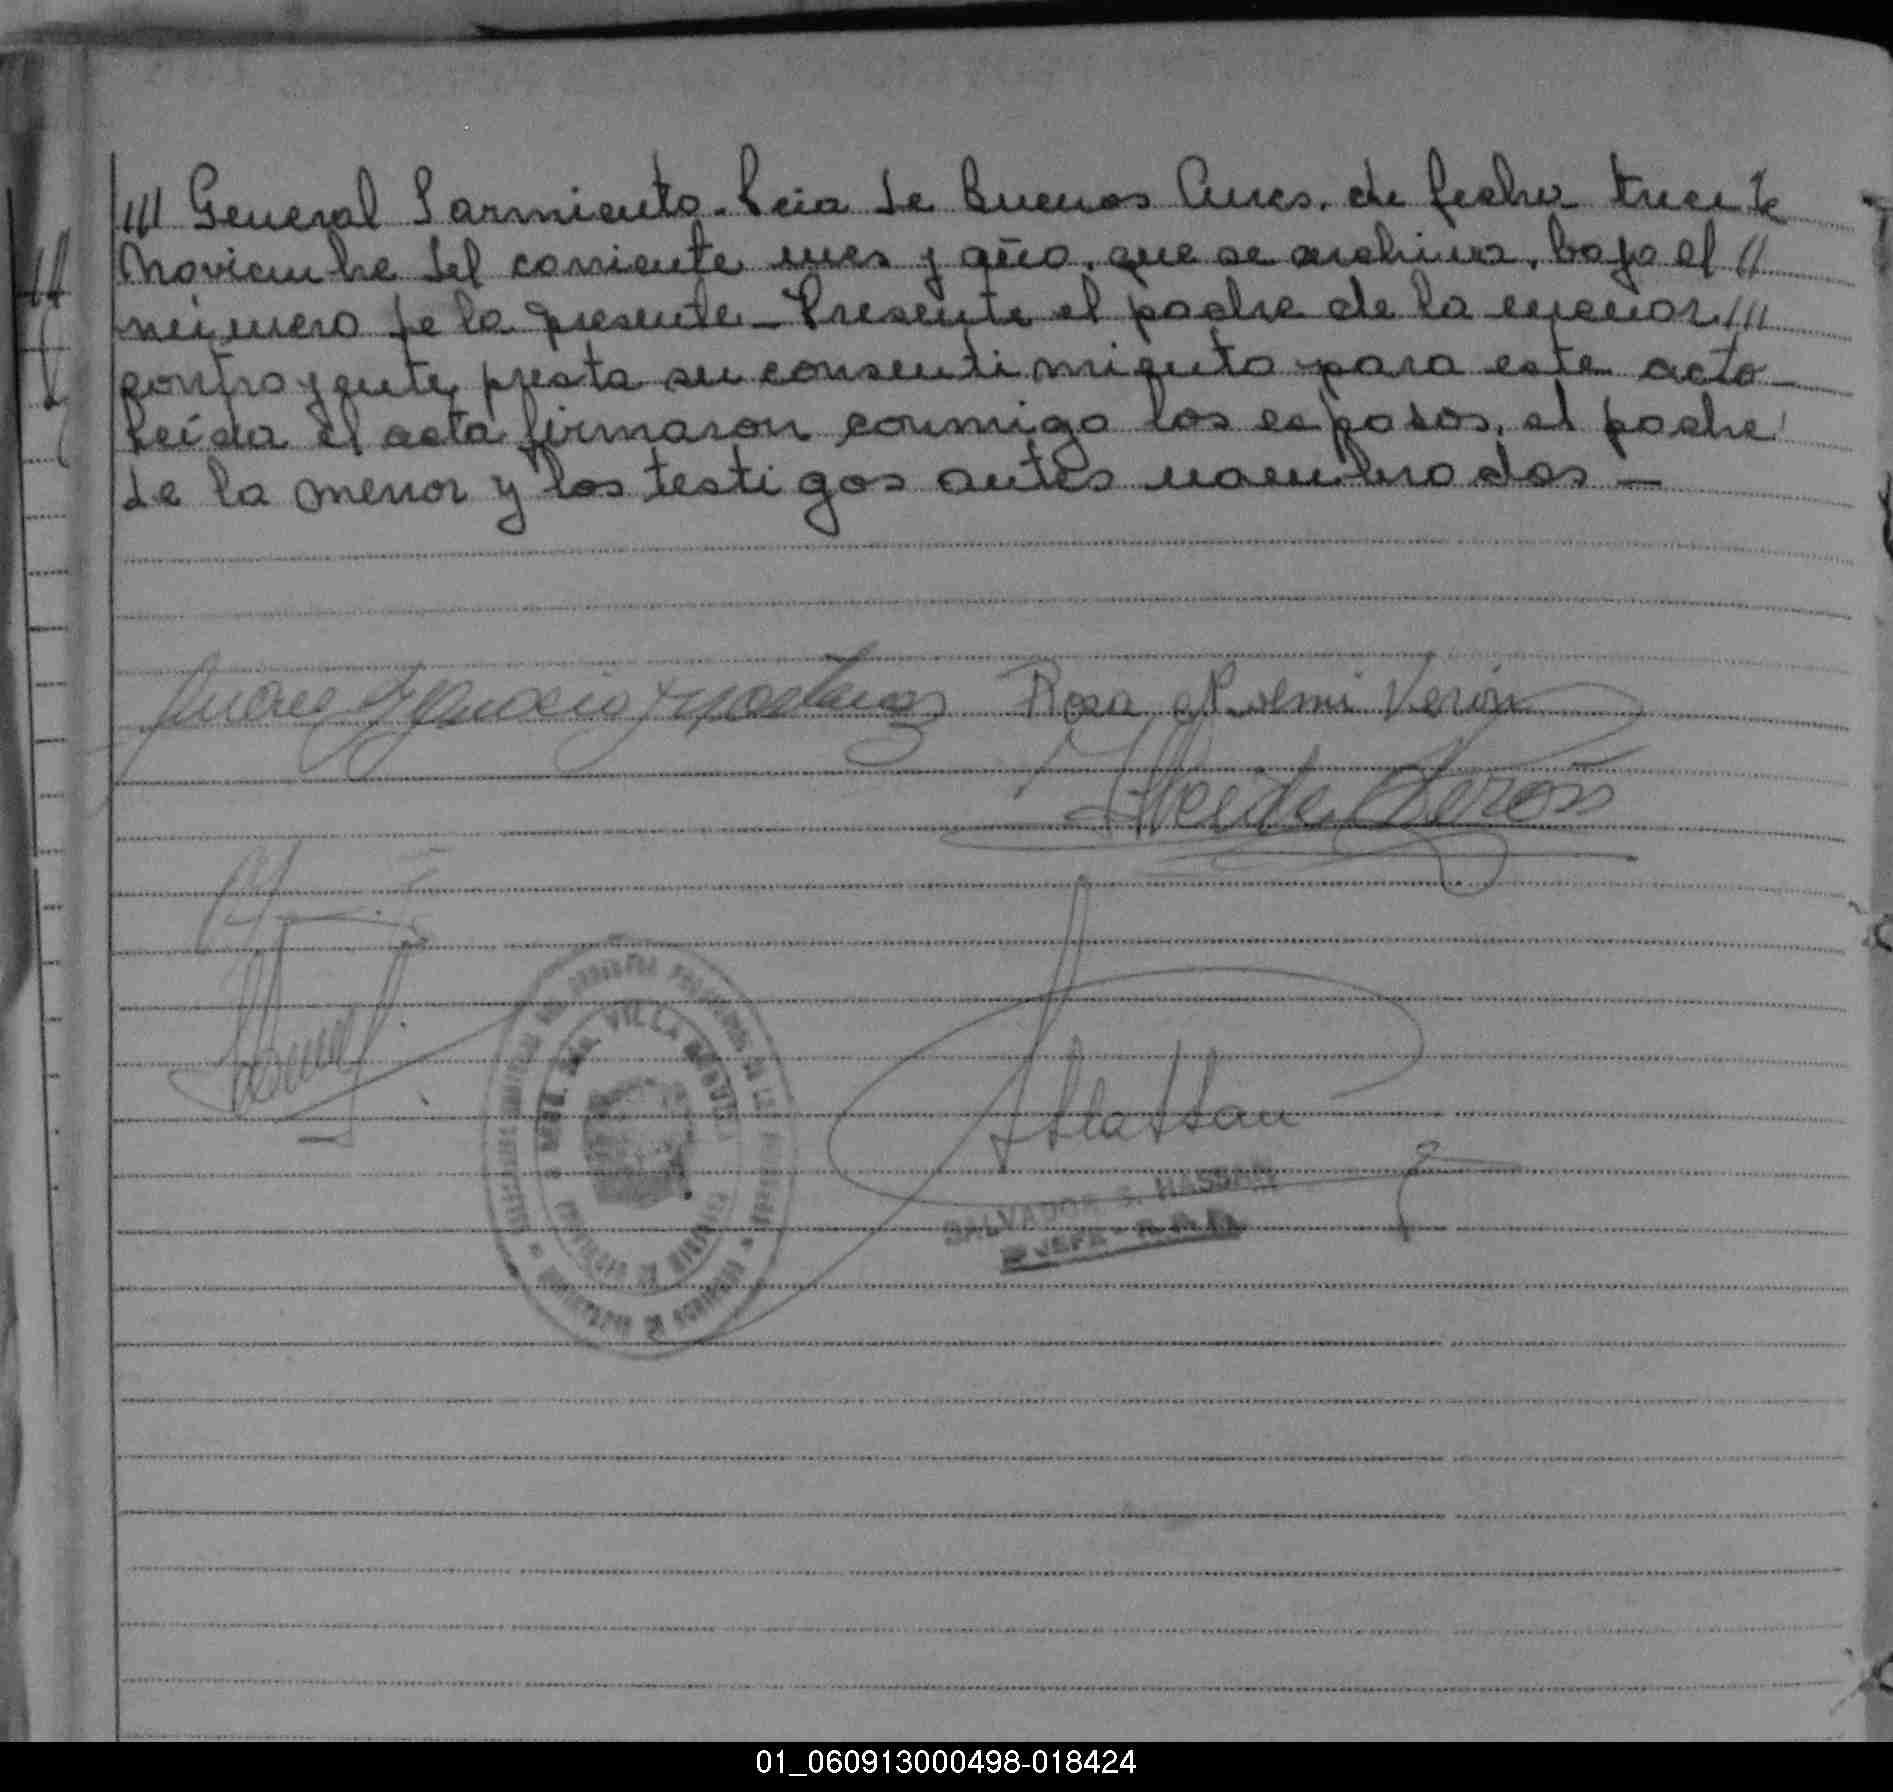 /// General Sarmiento. Pcia de Buenos Aires. de fecha trece de
Noviembre del corriente mes y año. que se archiva. bajo el //
número de la presente — Presente el padre de la menor ///
contrayente, presta su consentimiento para este acto —
Leída el acta firmaron conmigo los esposos, el padre
de la menor y los testigos antes nombrados —
Juan Ignacio
Rosa Noemi Verón
Verón
VILLA
SALVADOR S. HASSAN
JEFE
01_060913000498-018424